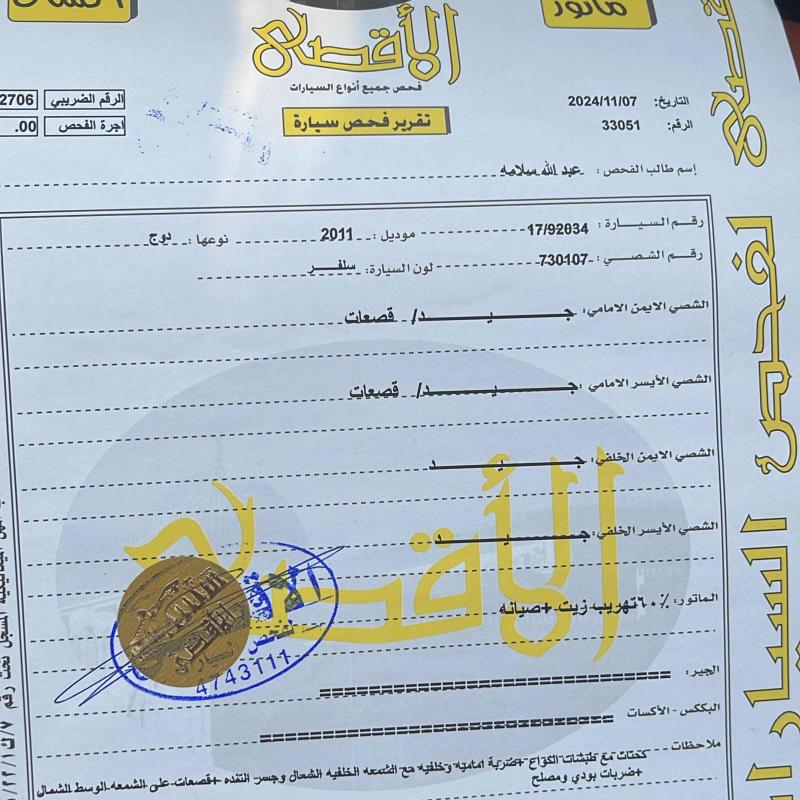 ماتور
الأقصى
فحص جميع أنواع السيارات
تقرير فحص سيارة
التاريخ: 2024/11/07
الرقم: 33051
الرقم الضريبي 2706
اجرة الفحص .00
إسم طالب الفحص : عبد الله سلامه
رقم السيارة : 17/92034 موديل : 2011 نوعها : دوج
رقم الشصي : 730107 لون السيارة: سلفر
الشصي الايمن الامامي: جيد/ قصعات
الشصي الأيسر الامامي: جيد/ قصعات
الشصي الايمن الخلفي: جيد
الشصي الأيسر الخلفي: جيد
الماتور: ٦٠٪ تهريب زيت + صيانه
الجير: ==============================
البككس - الأكسات ==============================
ملاحظات : كحتات مع طبشات الكواع +ضربة امامية وخلفيه مع الشمعه الخلفيه الشمال وجسر التنده +قصعات على الشمعه الوسط الشمال
+ضربات بودي ومصلح
الأقصى
لفحص
4743111
لفحص السيارات